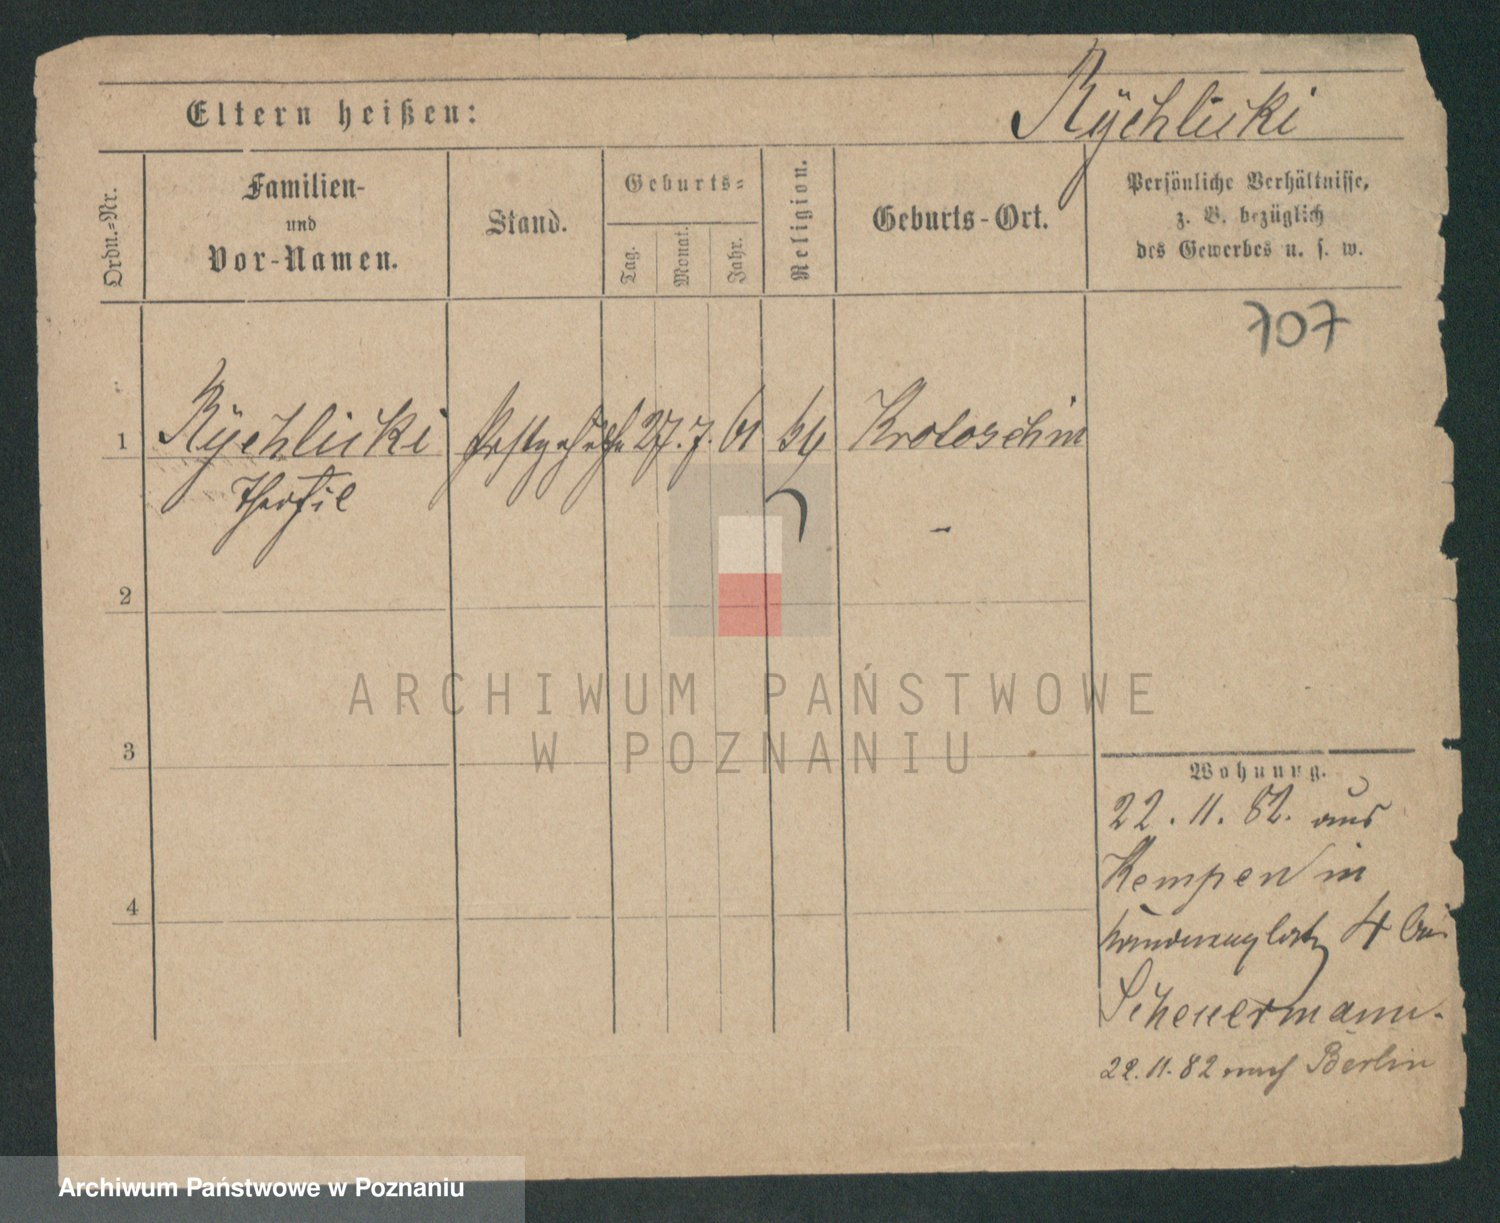 Eltern heißen:
Rÿchlicki
Ordn.=Nr.
Familien-
und
Vor-Namen.
Stand.
Geburts=
Tag.
Monat.
Jahr.
Religion.
Geburts-Ort.
Persönliche Verhältnisse,
z. B. bezüglich
des Gewerbes u. s. w.
707
1
Rÿchlicki
Postgehilfe
27. 7. 61
Kroloschin
Theofil
-
2
ARCHIWUM PAŃSTWOWE
W POZNANIU
3
Wohnung.
22. 11. 82. aus
Kempen in
4
4 bei
Scheuermann.
22. 11. 82 nach Berlin
Archiwum Państwowe w Poznaniu